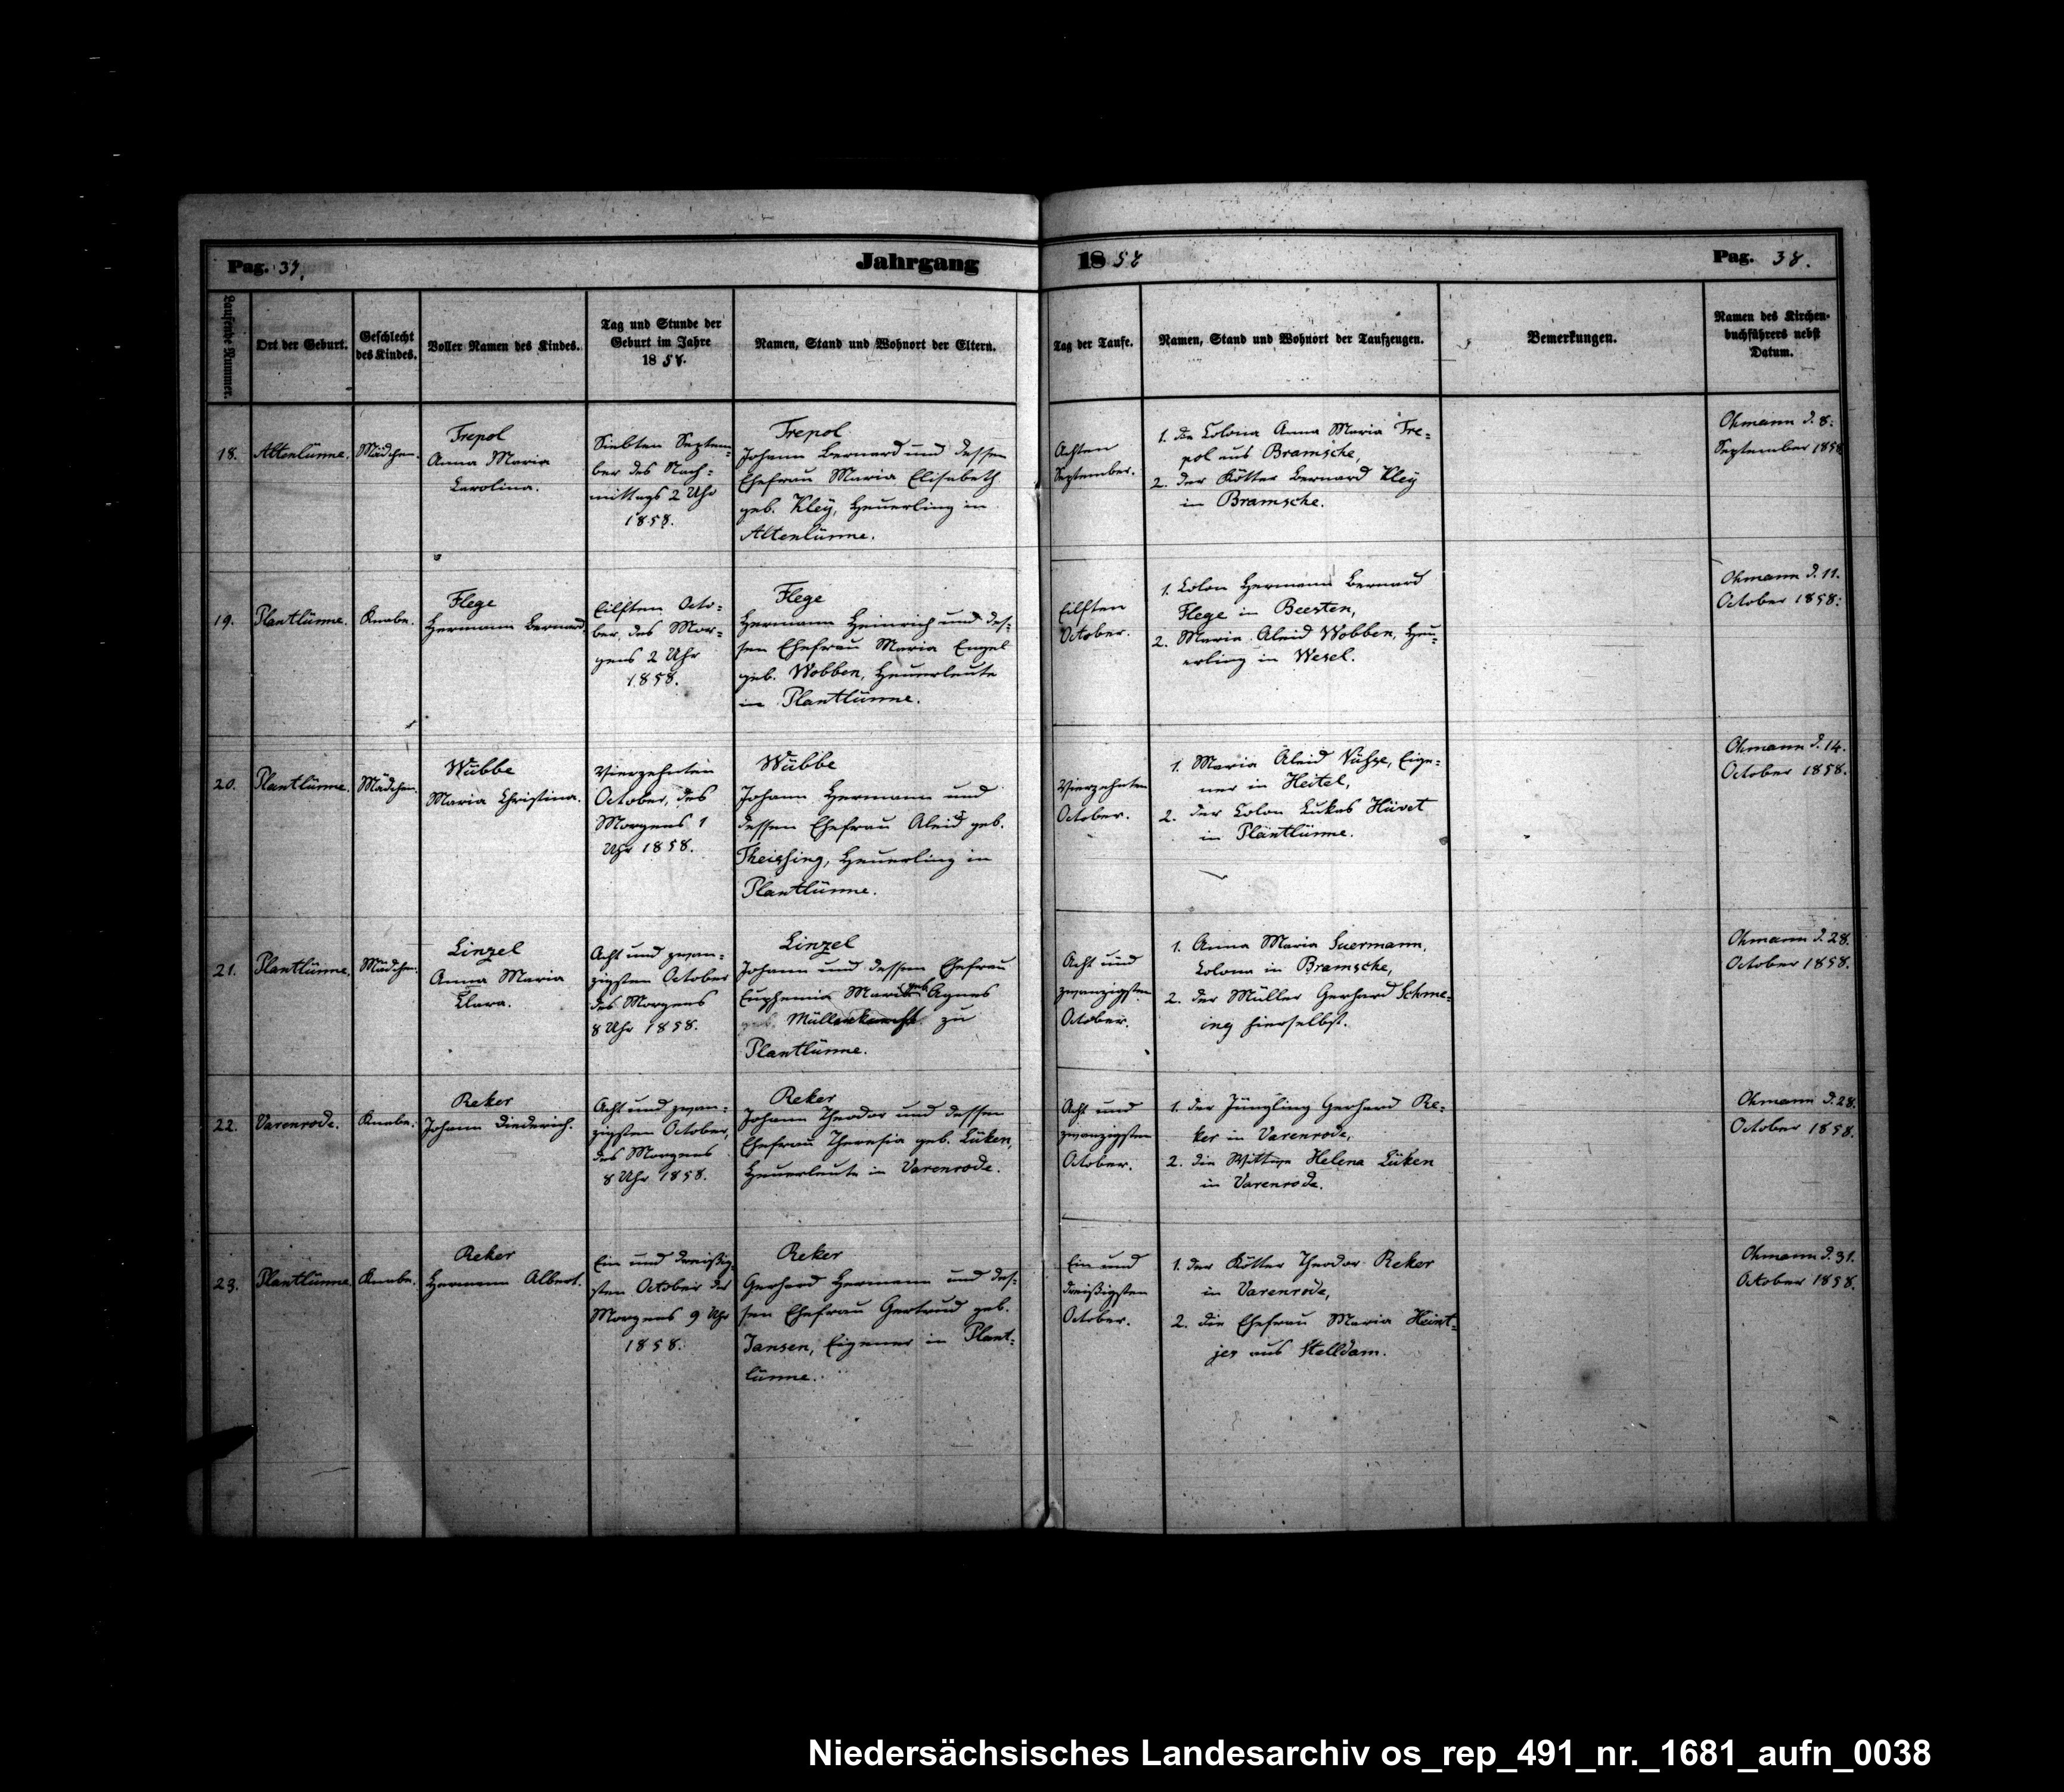 Pag. 37.
Jahrgang
1858
Pag. 38.
Laufende Nummer.
Ort der Geburt.
Geschlecht
des Kindes.
Voller Namen des Kindes.
Tag und Stunde der
Geburt im Jahre
1858.
Namen, Stand und Wohnort der Eltern.
Tag der Taufe.
Namen, Stand und Wohnort der Taufzeugen.
Bemerkungen.
Namen des Kirchen-
buchführers nebst
Datum.
18.
Altenlünne.
Mädchen.
Trepol
Anna Maria
Carolina.
Siebten Septem-
ber des Nach-
mittags 2 Uhr
1858.
Trepol
Johann Bernard und dessen
Ehefrau Maria Elisabeth
geb. Kleÿ, Heuerling in
Altenlünne.
Achten
September.
1. die Colona Anna Maria Tre-
pol aus Bramsche,
2. der Kötter Bernard Kleÿ
in Bramsche.
Ohmann d. 8.
September 1858
19.
Plantlünne.
Knabe.
Flege
Hermann Bernard.
Eilften Octo-
ber, des Mor-
gens 2 Uhr
1858.
Flege
Hermann Heinrich und des-
sen Ehefrau Maria Engel
geb. Wobben, Heuerleute
in Plantlünne.
Eilften
October.
1. Colon Hermann Bernard
Flege in Beesten,
2. Maria Aleid Wobben, Heu-
erling in Wesel.
Ohmann d. 11.
October 1858.
20.
Plantlünne.
Mädchen.
Wübbe
Maria Christina.
Vierzehnten
October, des
Morgens 1
Uhr 1858.
Wübbe
Johann Hermann und
dessen Ehefrau Aleid geb.
Theissing, Heuerling in
Plantlünne.
Vierzehnten
October.
1. Maria Aleid Eige-
ner in Heitel,
2. der Colon Lukas Hüvet
in Plantlünne.
Ohmann d. 14.
October 1858.
21.
Plantlünne.
Mädchen.
Linzel
Anna Maria
Clara.
Acht und zwan-
zigsten October
des Morgens
8 Uhr 1858.
Linzel
Johann und dessen Ehefrau
Euphemia Maria geb. Agnes
geb. Müllerknecht zu
Plantlünne.
Acht und
zwanzigsten
October.
1. Anna Maria Suermann,
Colona in Bramsche,
2. der Müller Gerhard Schme-
ing hierselbst.
Ohmann d. 28.
October 1858.
22.
Varenrode.
Knabe.
Reker
Johann Diederich.
Acht und zwan-
zigsten October,
des Morgens
8 Uhr 1858.
Reker
Johann Theodor und dessen
Ehefrau Theresia geb. Lüken,
Heuerleute in Varenrode.
Acht und
zwanzigsten
October.
1. der Jüngling Gerhard Re-
ker in Varenrode,
2. die Wittwe Helena Lüken
in Varenrode.
Ohmann d. 28.
October 1858.
23.
Plantlünne
Knabe.
Reker
Hermann Albert.
Ein und dreißig-
sten October des
Morgens 9 Uhr
1858.
Reker
Gerhard Hermann und des-
sen Ehefrau Gertrud geb.
Jansen, Eigener in Plant-
lünne.
Ein und
dreißigsten
October.
1. der Kötter Theodor Reker
in Varenrode,
2. die Ehefrau Maria Heint-
jes aus Stelldam.
Ohmann d. 31.
October 1858.
Niedersächsisches Landesarchiv os_rep_491_nr._1681_aufn_0038